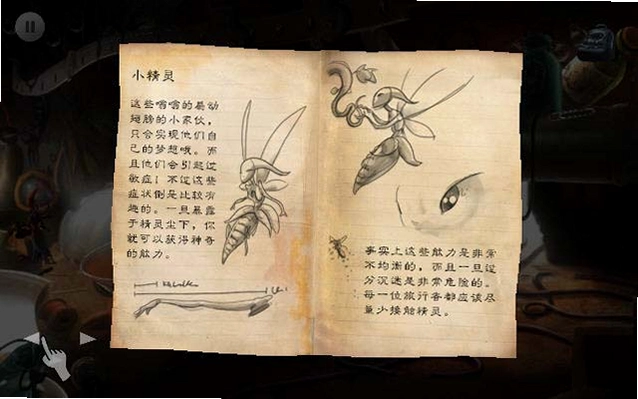 小精灵
这些嗡嗡的扇动
翅膀的小家伙，
只会实现他们自
己的梦想哦。而
且他们会引起过
敏症！不过这些
症状倒是比较有
趣的。一旦暴露
于精灵尘下，你
就可以获得神奇
的魅力。
事实上这些魅力是非常
不均衡的，而且一旦过
分沉迷是非常危险的。
每一位旅行者都应该尽
量少接触精灵。